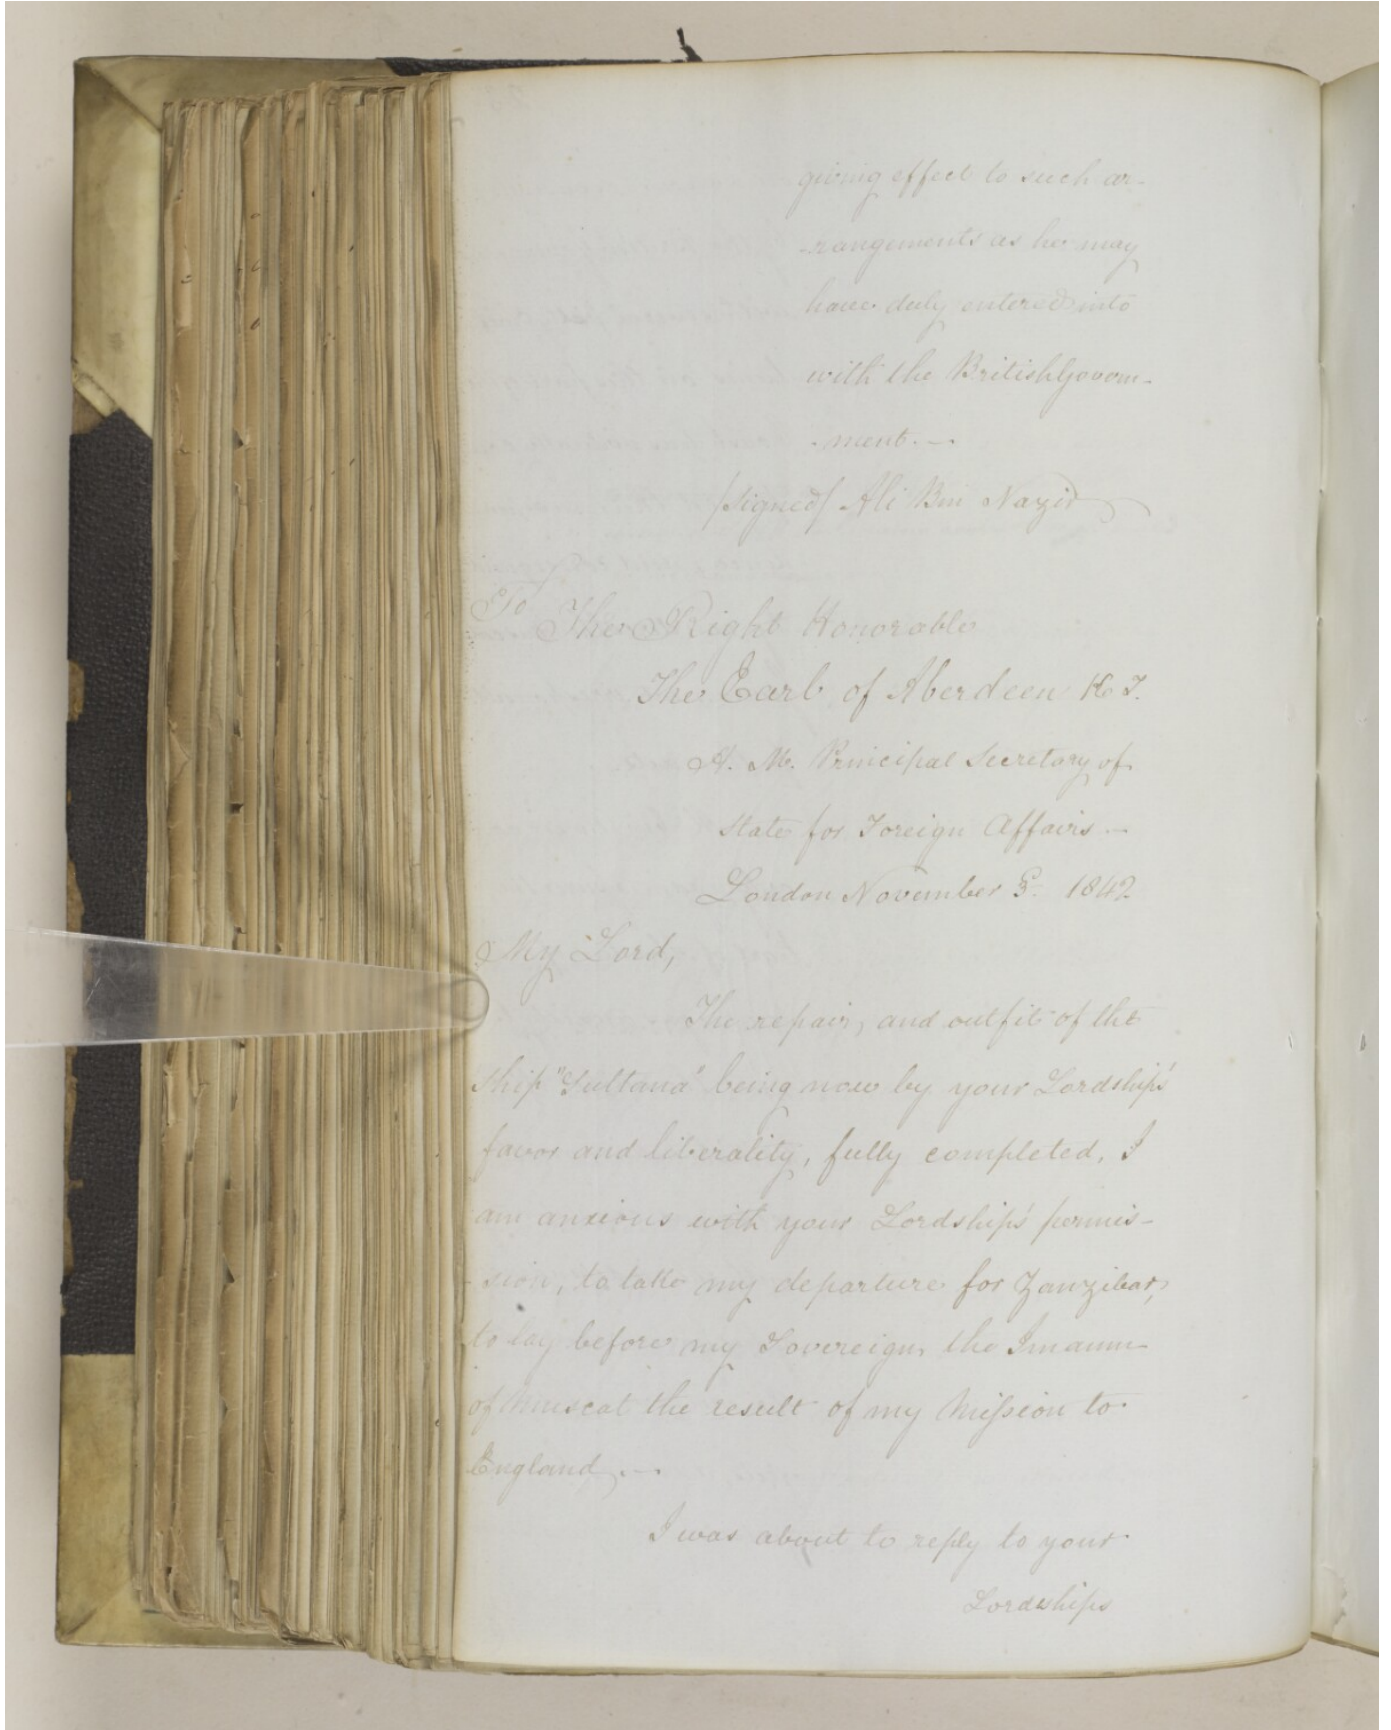 giving effect to such ar-
-rangements as he may
have duly entered into
with the British Govern-
-ment.—
/signed/ Ali Bin Nazir
To The Right Honorable
The Earl of Aberdeen K T.
H. M. Principal Secretary of
State for Foreign Affairs—
London November 3. 1842
My Lord,
The repair, and outfit of the
Ship "Sultana" being now by your Lordship's
favor and liberality, fully completed, I
am anxious with your Lordship's permis-
-sion, to take my departure for Zanzibar,
to lay before my Sovereign the Imaum
of Muscat the result of my Mission to
England.—
I was about to reply to your
Lordships